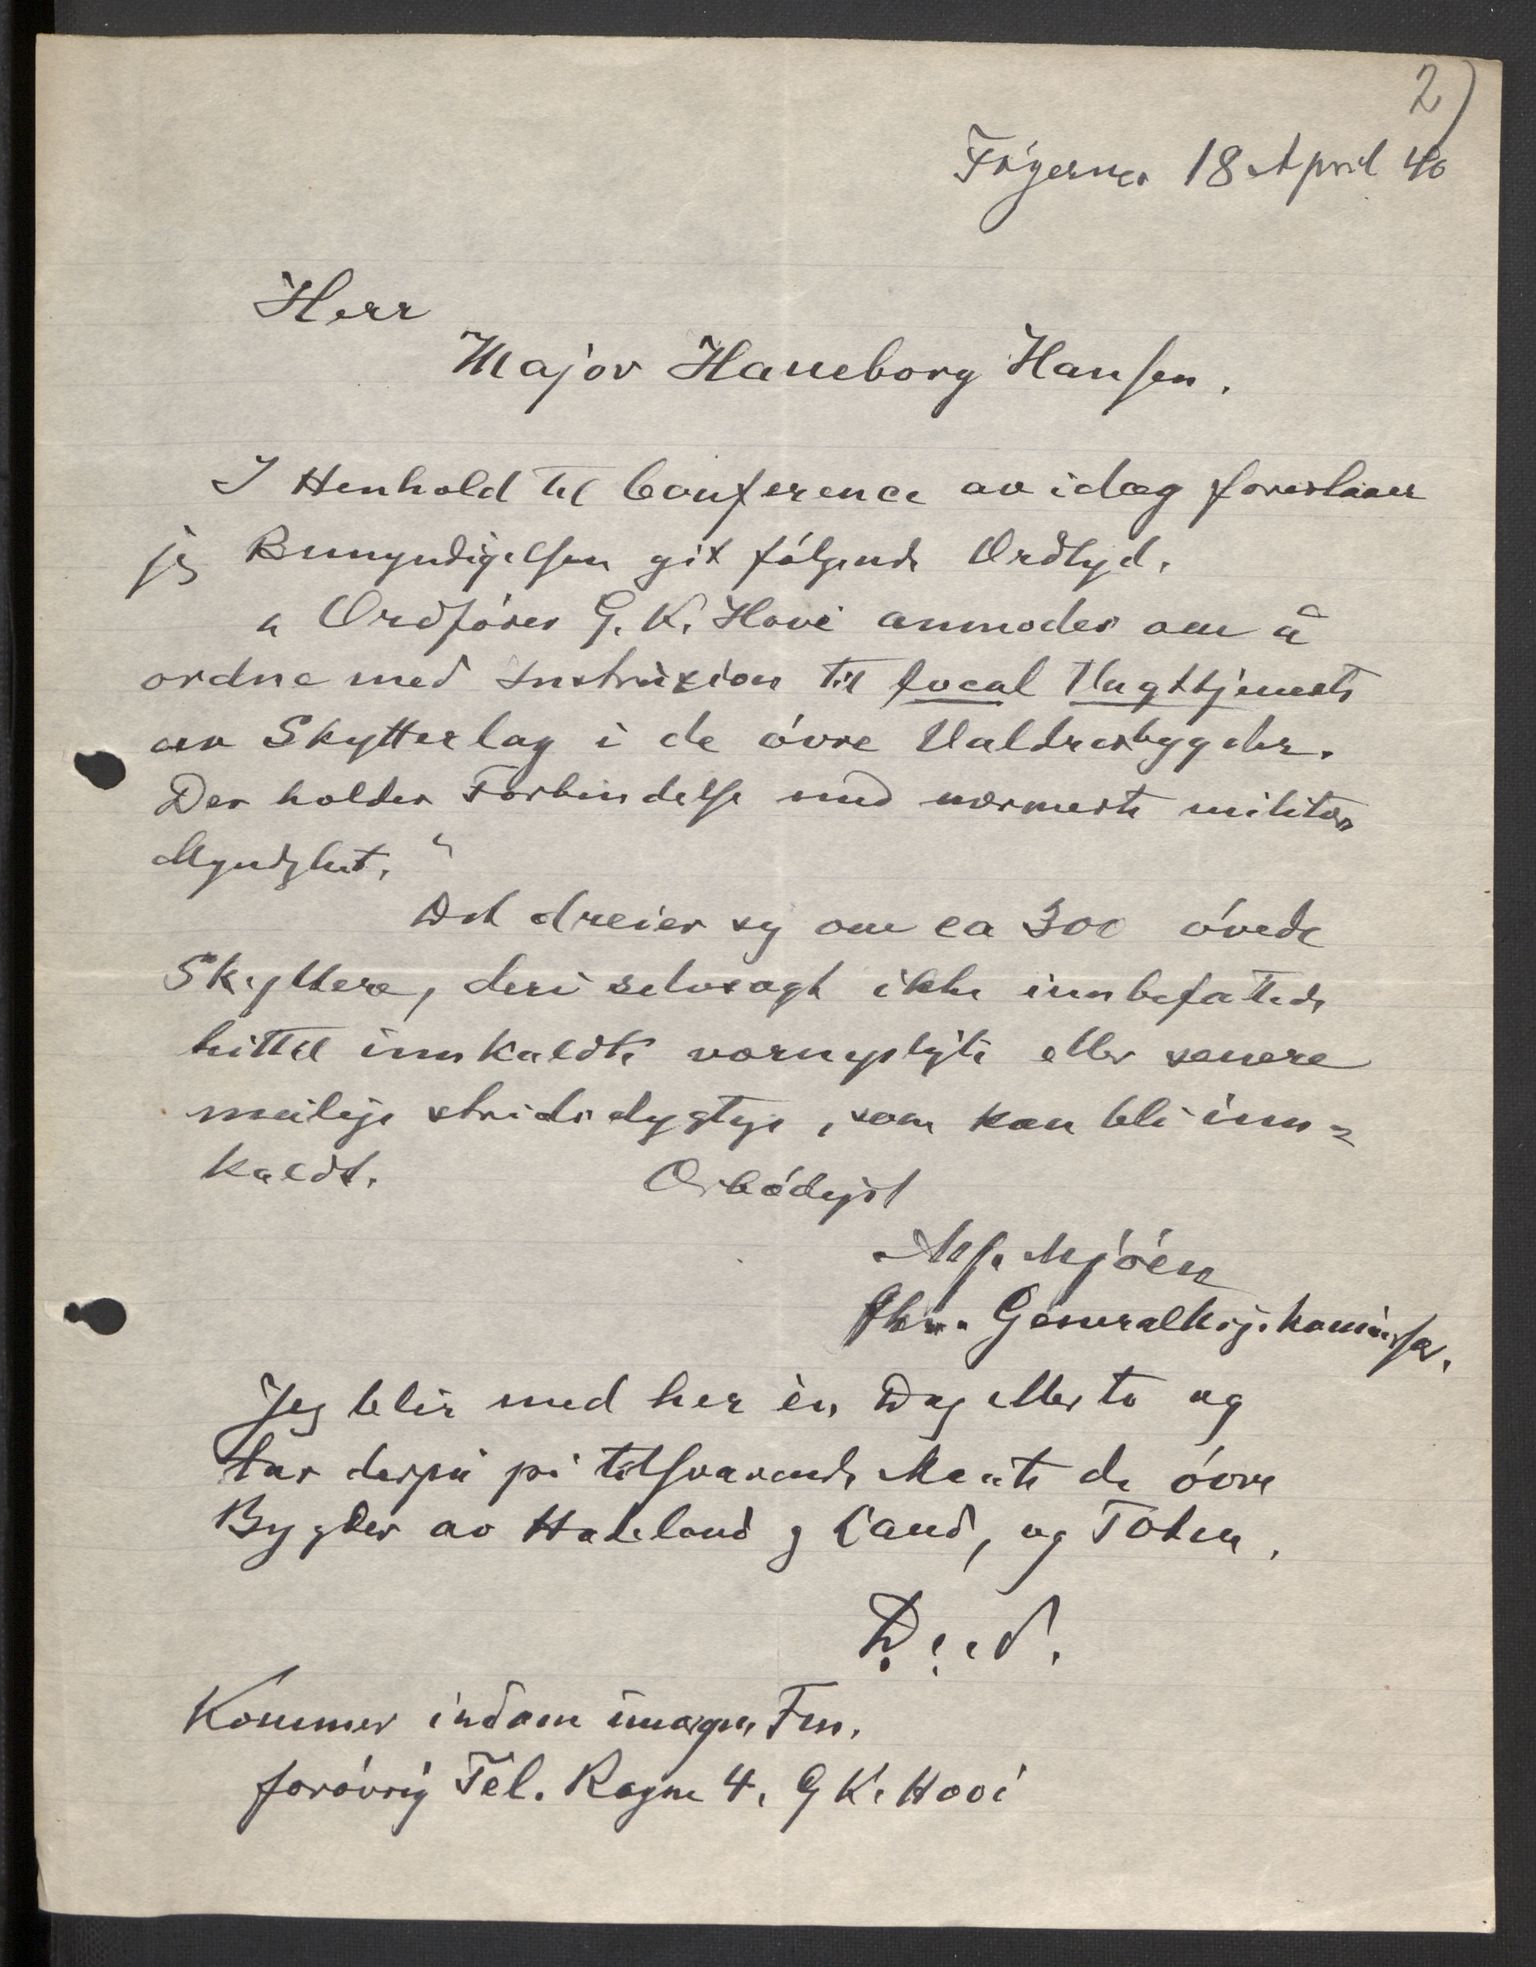 2)
Fagernes 18 April 40
Herr
Major Haneborg Hansen.
I Henhold til Conference av idag foreslaaer
jeg Bemyndigelsen git følgende Ordlyd.
" Ordfører G. K. Hovi anmodes om å
ordne med Instruxion til local Vagttjeneste
av Skytterlag i de øvre Valdresbygder.
Der holdes Forbindelse med nærmeste militær
Myndighet. "
Det dreier sig om ca 300 øvede
Skyttere, deri selvsagt ikke innbefattede
hittil innkaldte vernepligte eller senere
mulige stridsdygtige, som kan bli inn=
kaldt. Ærbødigst
Alf. Mjøen
Generalkrigskommissær.
Jeg blir med her èn Dag eller to og
tar derpå på tilsvarende Maate de øvre
Bygder av Hadeland g Land, og Toten.
D.s.
Kommer indom imorgen Fm.
forøvrig Tel. Rogne 4. G K. Hovi